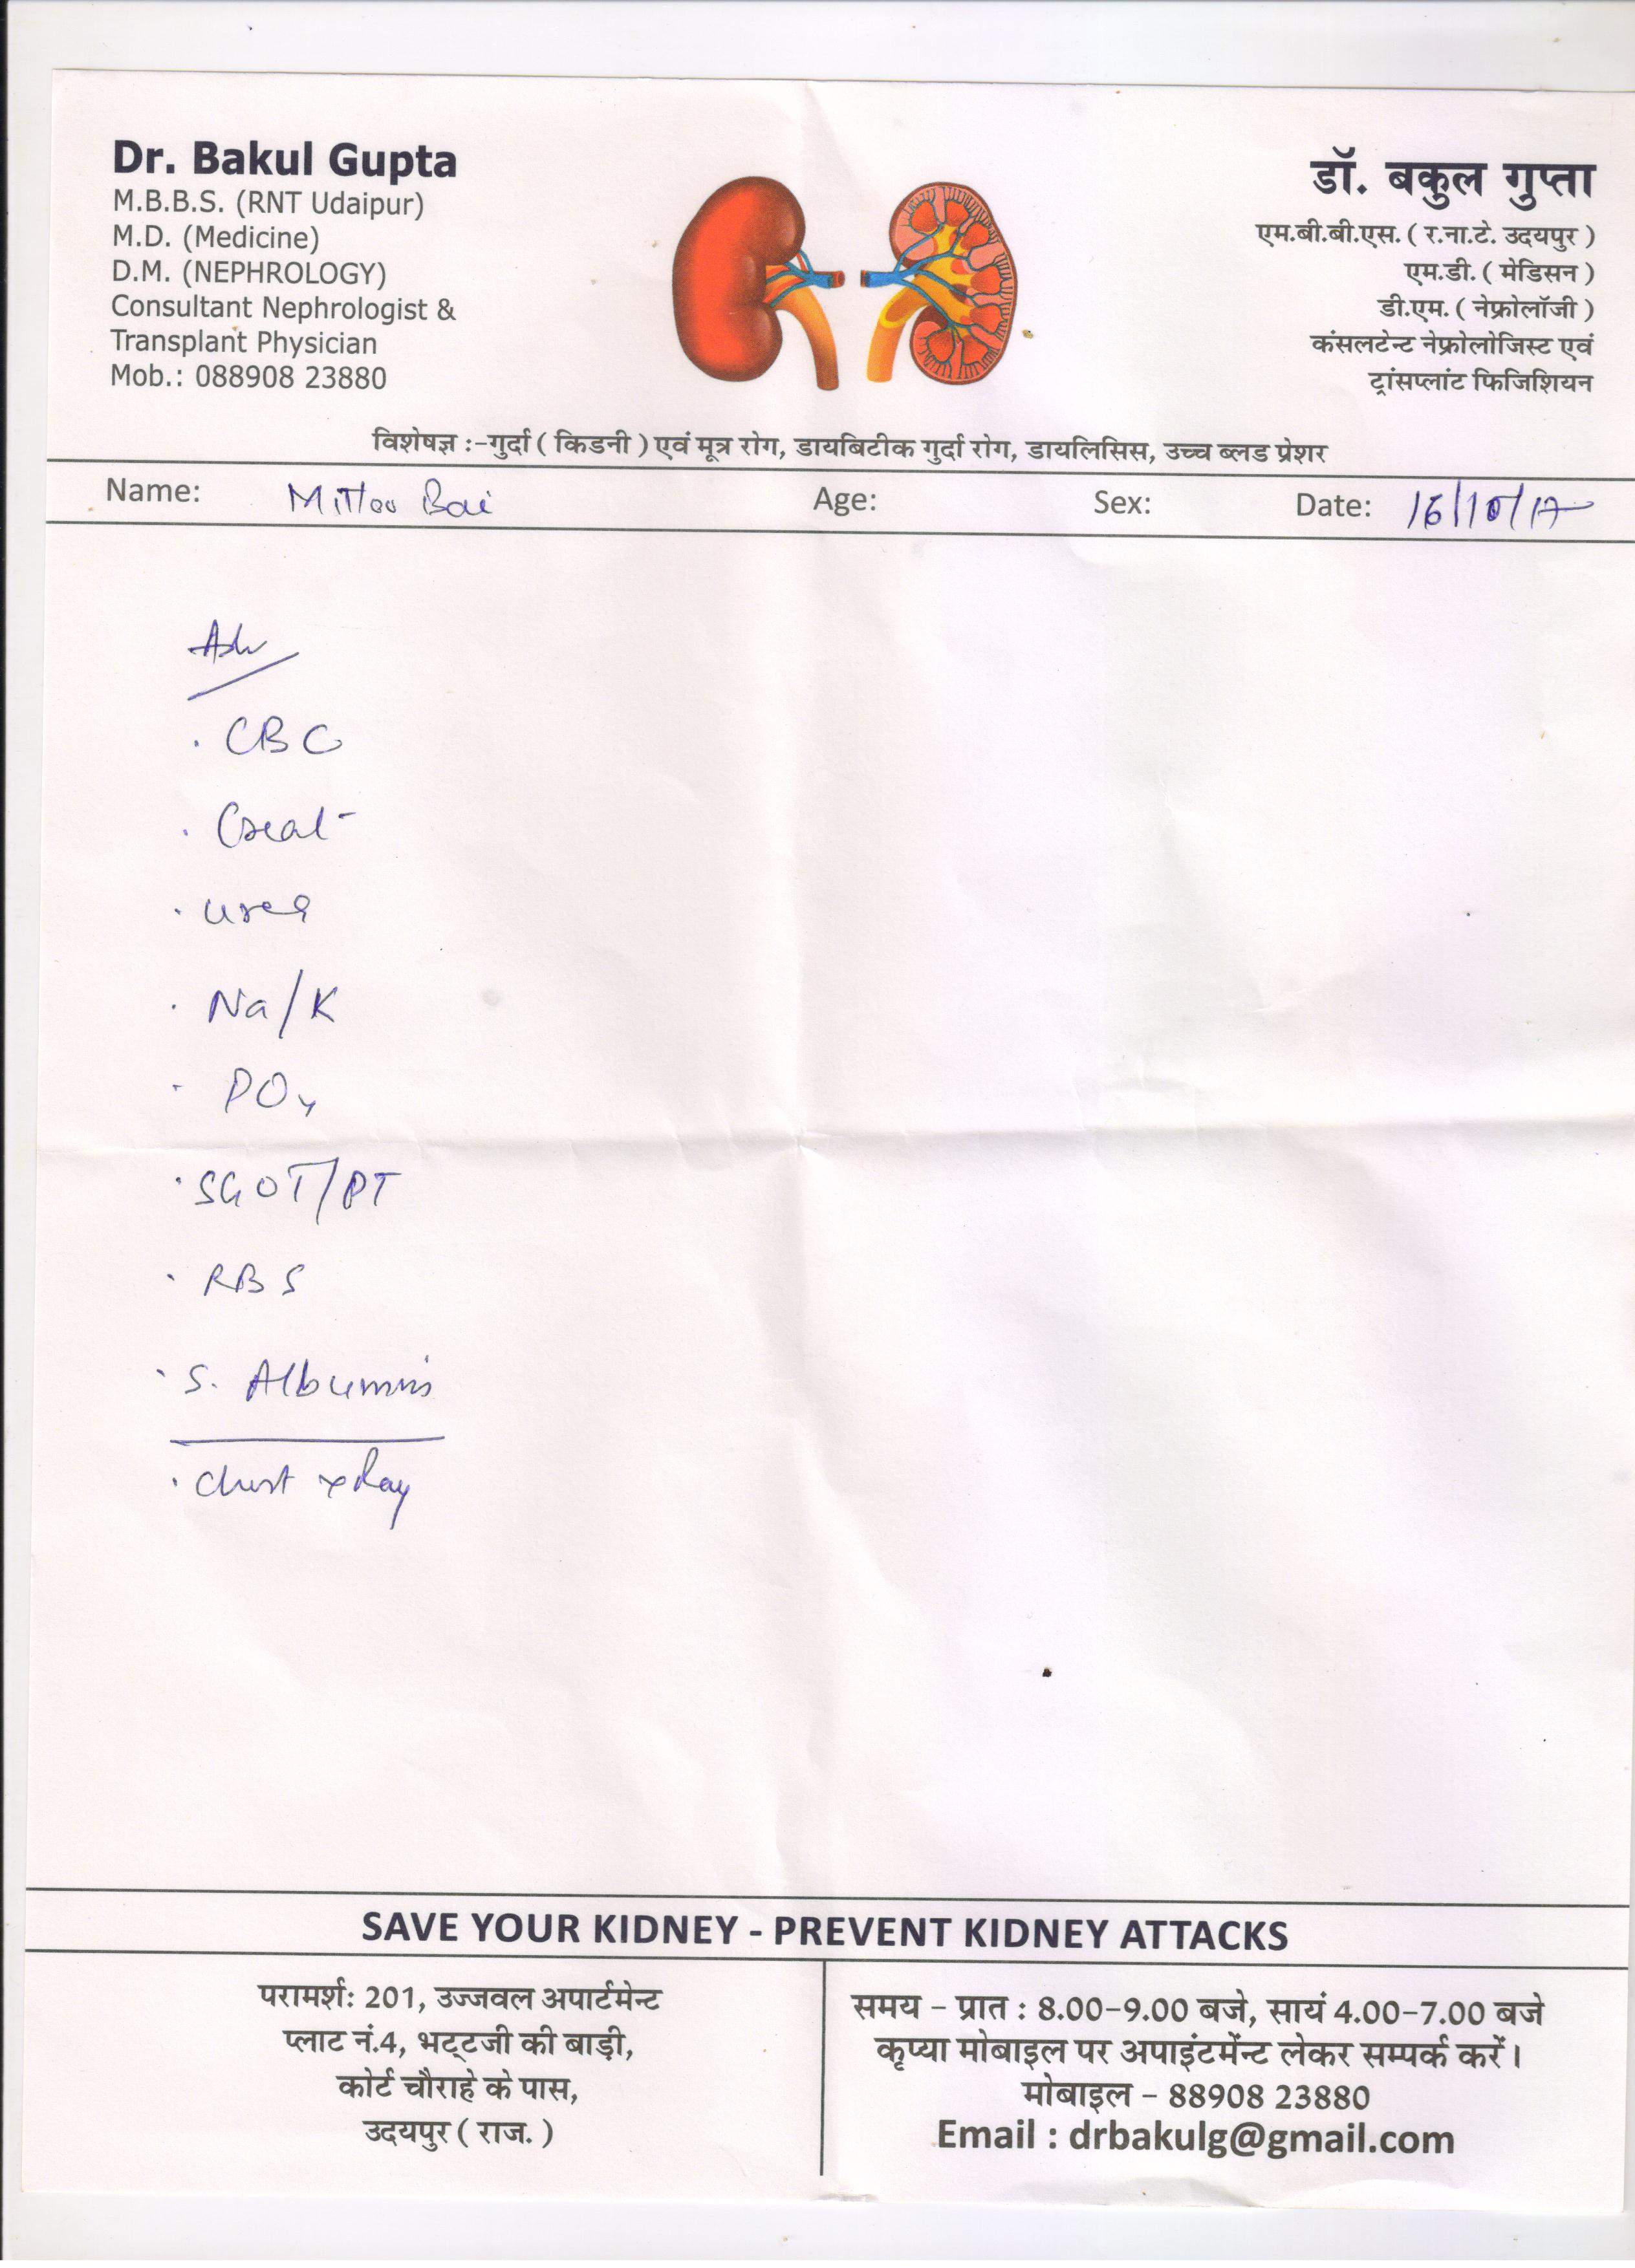 Dr. Bakul Gupta
M.B.B.S. (RNT Udaipur)
M.D. (Medicine)
D.M. (NEPHROLOGY)
Consultant Nephrologist &
Transplant Physician
Mob.: 088908 23880
डॉ. बकुल गुप्ता
एम.बी.बी.एस. ( र.ना.टे. उदयपुर )
एम.डी. ( मेडिसन )
डी.एम. ( नेफ्रोलॉजी )
कंसलटेन्ट नेफ्रोलोजिस्ट एवं
ट्रांसप्लांट फिजिशियन
विशेषज्ञ :-गुर्दा ( किडनी ) एवं मूत्र रोग, डायबिटीक गुर्दा रोग, डायलिसिस, उच्च ब्लड प्रेशर
Name: Mittoo Bai Age: Sex: Date: 16/10/17
Adv
. CBC
. Creat-
. urea
. Na/K
- PO4
. SGOT/PT
. RBS
. S. Albumin
. Chest xRay
SAVE YOUR KIDNEY - PREVENT KIDNEY ATTACKS
परामर्श: 201, उज्जवल अपार्टमेन्ट
प्लाट नं.4, भट्टजी की बाड़ी,
कोर्ट चौराहे के पास,
उदयपुर ( राज. )
समय - प्रात : 8.00-9.00 बजे, सायं 4.00-7.00 बजे
कृप्या मोबाइल पर अपाइंटमेंन्ट लेकर सम्पर्क करें।
मोबाइल - 88908 23880
Email : drbakulg@gmail.com